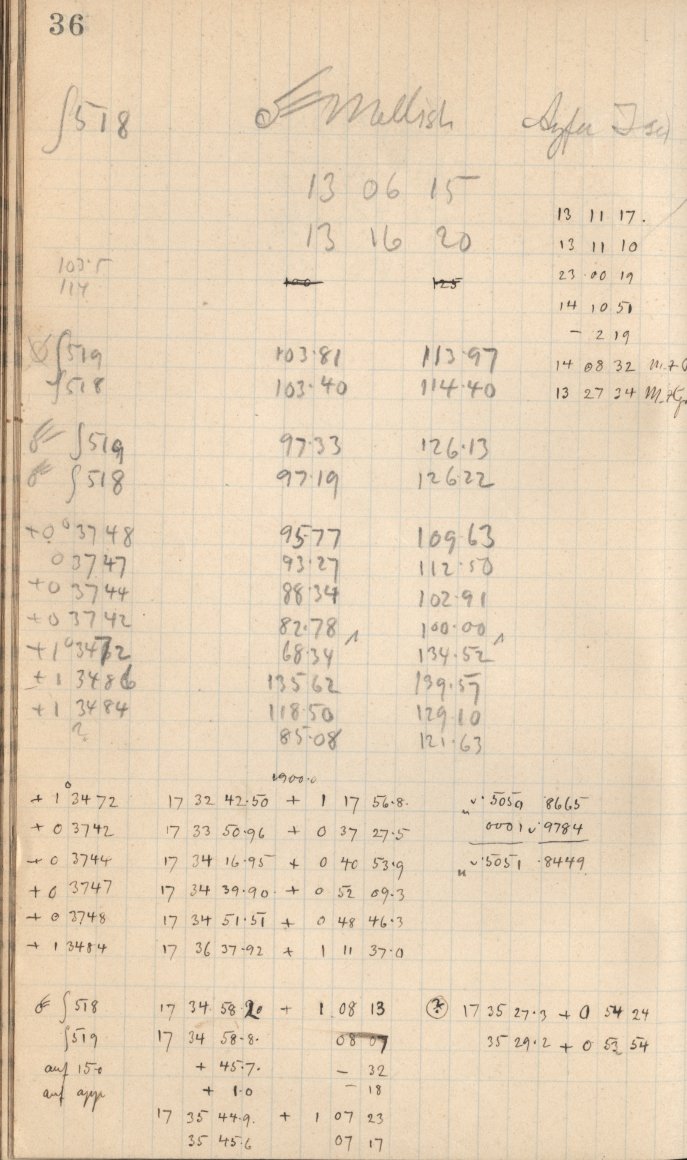 36
∫518 Mellish
13 06 15
13 16 20
13 11 17.
13 11 10
23 00 19
14 10 51
- 2 19
14 08 32
13 27 34
103.5
114
100 125
∫519 103.81 113.97
∫518 103.40 114.40
∫519 97.33 126.13
∫518 97.19 126.22
+0° 3748 95.77 109.63
0 3747 93.27 112.50
+0 3744 88.34 102.91
+0 3742 82.78 100.00
+1° 3472 68.34 134.52
+1 3486 135.62 139.57
+1 3484 118.50 129.10
? 85.08 121.63
1900.0
+1° 3472 17 32 42.50 + 1 17 56.8
+0 3742 17 33 50.96 + 0 37 27.5
+0 3744 17 34 16.95 + 0 40 53.9
+0 3747 17 34 39.90 + 0 52 09.3
+0 3748 17 34 51.51 + 0 48 46.3
+1 3484 17 36 37.92 + 1 11 37.0
5059 8665
0001 9784
5051 8449
∫518 17 34 58.20 + 1 08 13
∫519 17 34 58.8 08 07
auf 15.0 + 45.7 - 32
auf app + 1.0 - 18
17 35 44.9 + 1 07 23
35 45.6 07 17
? 17 35 27.3 + 0 54 24
35 29.2 + 0 53 54